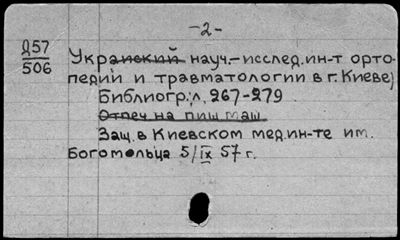 -2-
Д57
506
Украинский науч.-исслед.ин-т орто-
педии и травматологии в г. Киеве)
Библиогр.: л. 267-279
Отпеч на пиш маш.
Защ. в Киевском мед.ин-те им.
Богомольца 5/IX 57 г.